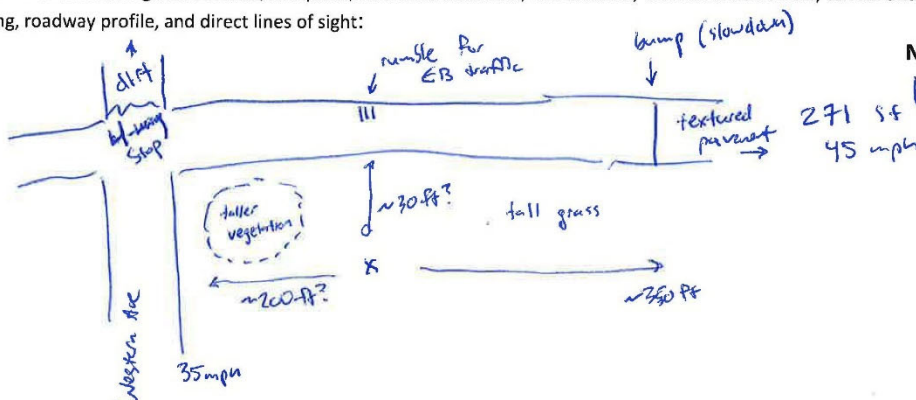 ng, roadway profile, and direct lines of sight:
dirt
Stop
rumble for
EB traffic
bump (slowdown)
N
textured
pavement
271 sf
45 mph
taller
vegetation
~30ft?
tall grass
x
~200ft?
~350 ft
Western Ave
35mph